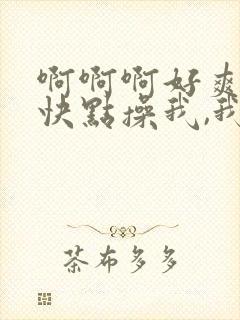 啊啊啊好爽
快點操我,我
茶布多多